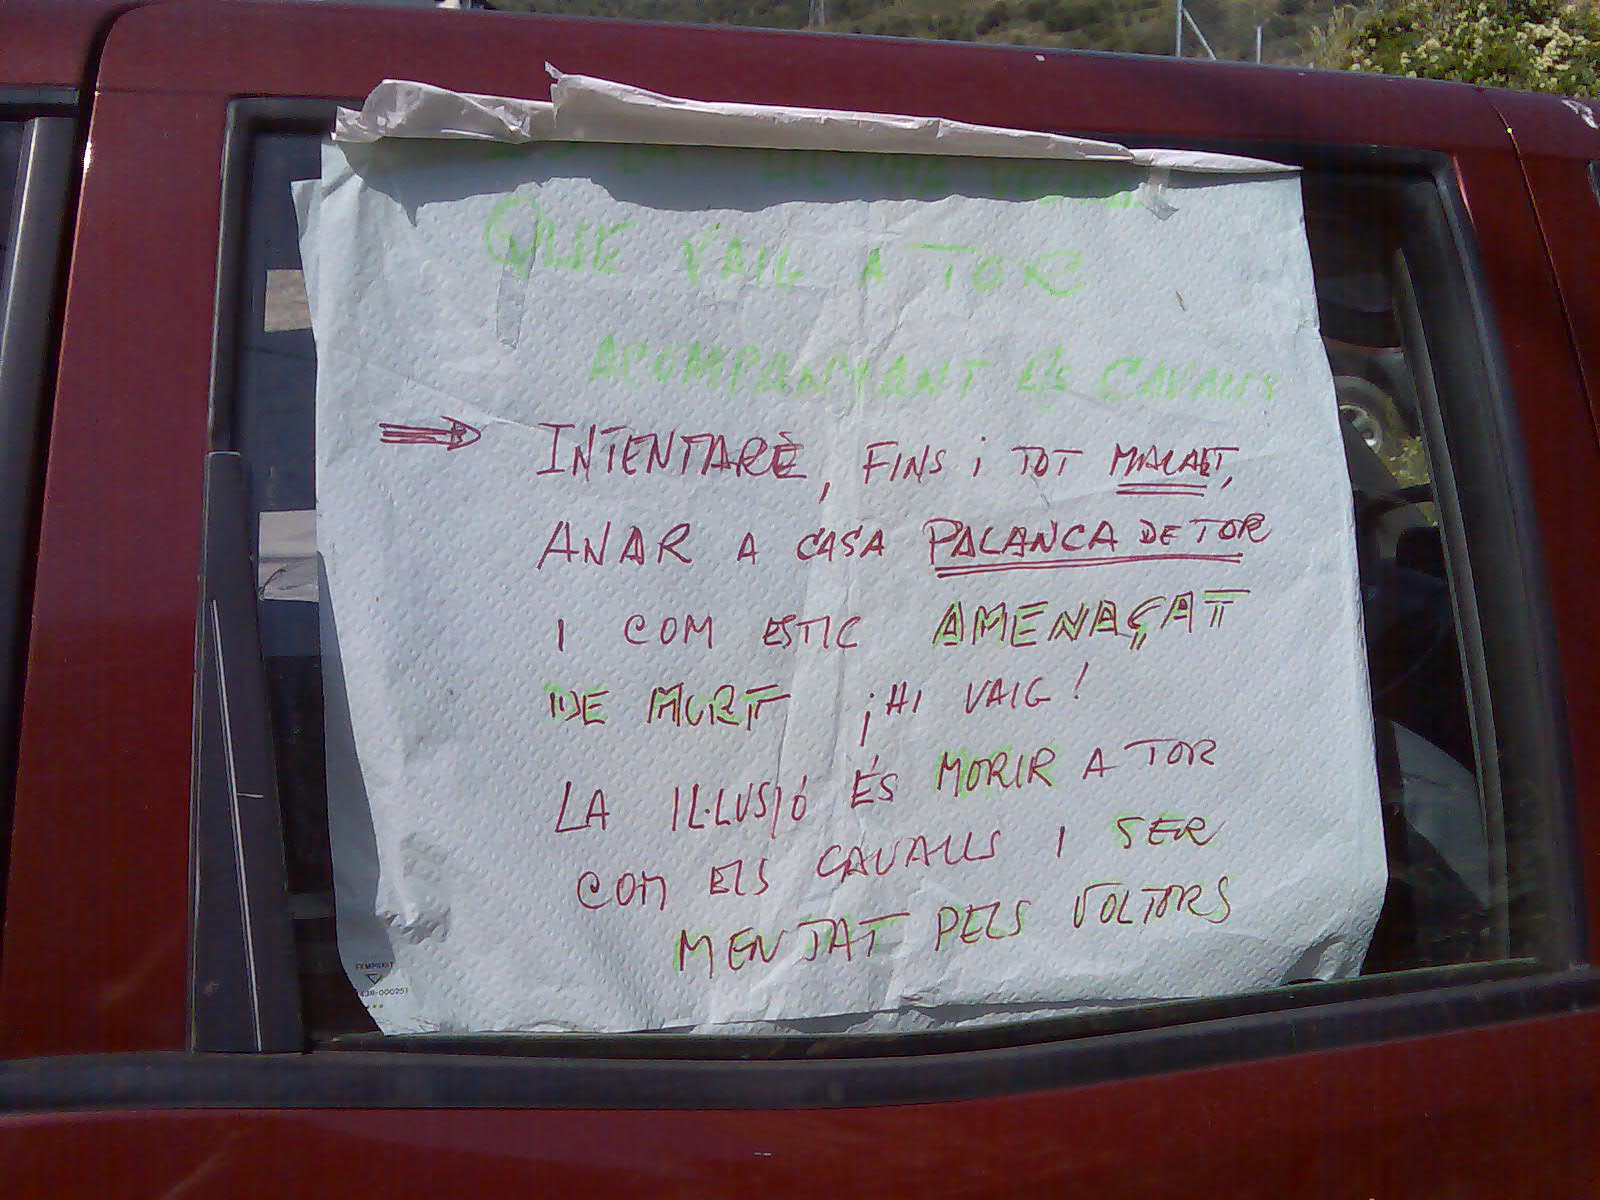 ULTIMA
QUE VAIG A TOR
ACOMPANYANT ELS CAVALLS
INTENTARÈ, FINS i TOT MALALT,
ANAR A CASA PALANCA DE TOR
I COM ESTIC AMENAÇAT
DE MORT ¡HI VAIG!
LA IL·LUSIÓ ÉS MORIR A TOR
COM ELS CAVALLS I SER
MENJAT PELS VOLTORS
43R-000251